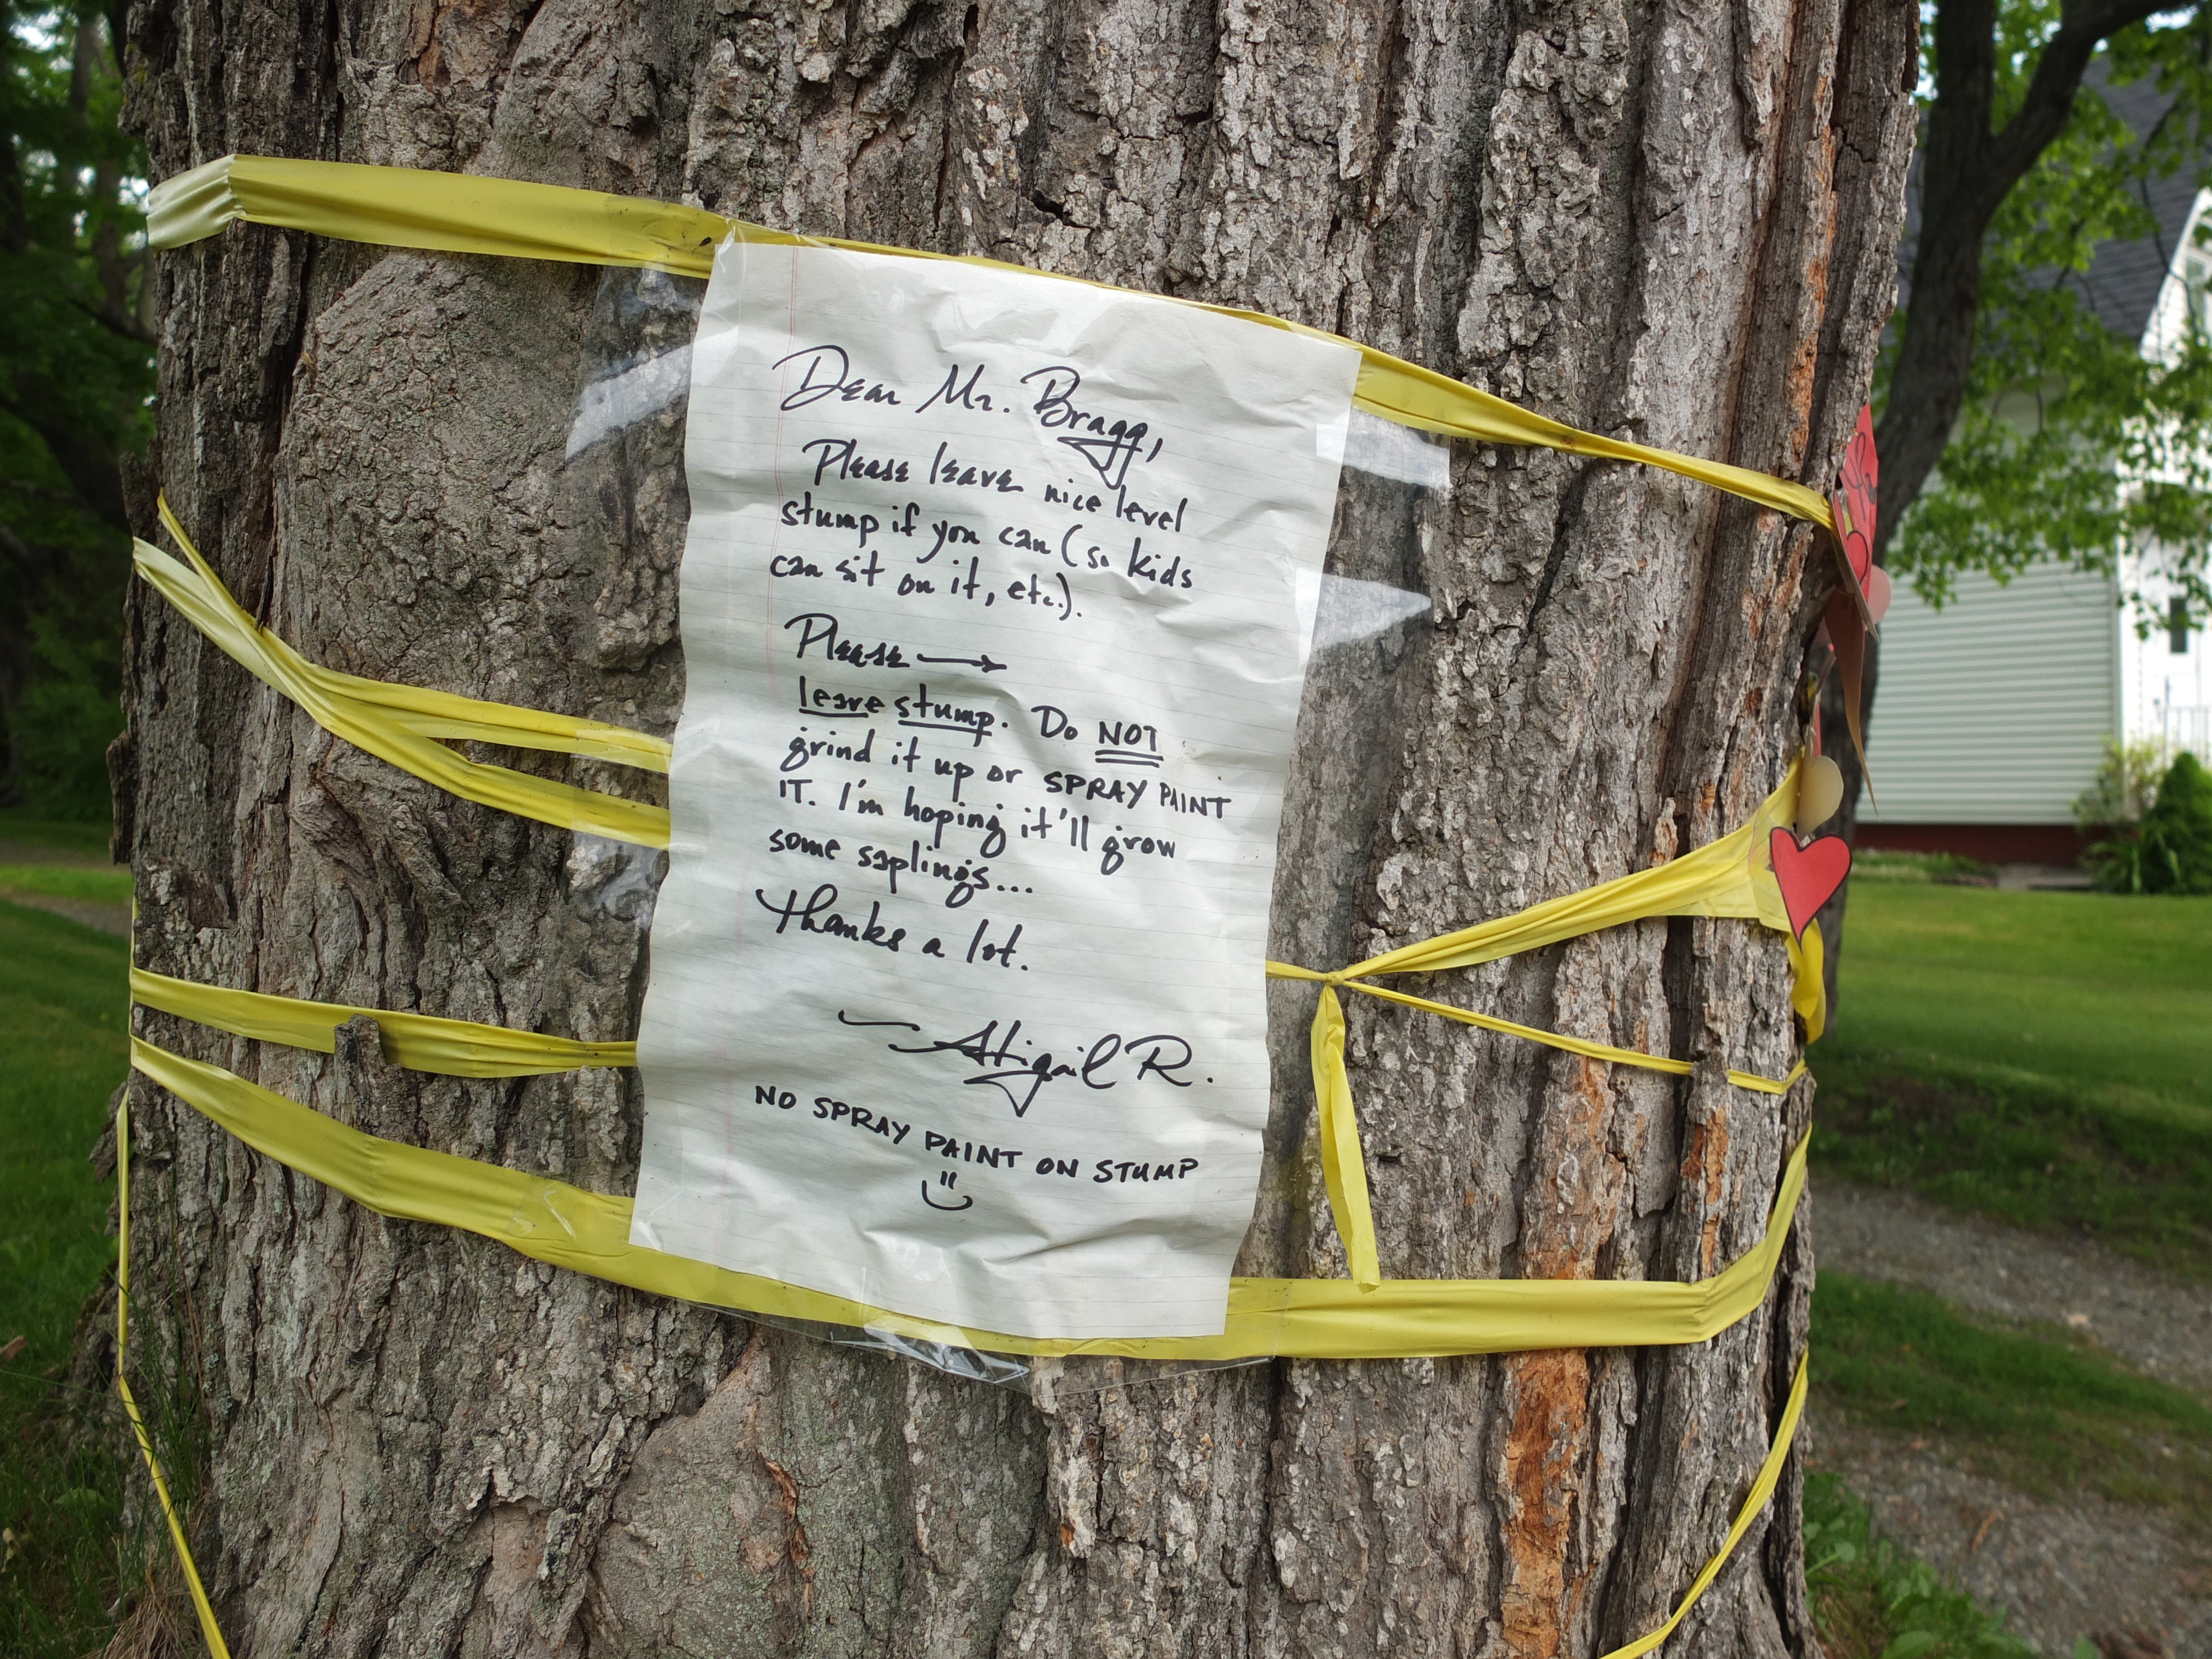 Dear Mr. Bragg,
Please leave nice level
stump if you can (so kids
can sit on it, etc.).
Please →
leave stump. Do NOT
grind it up or SPRAY PAINT
IT. I'm hoping it'll grow
some saplings...
Thanks a lot.
— Abigail R.
NO SPRAY PAINT ON STUMP